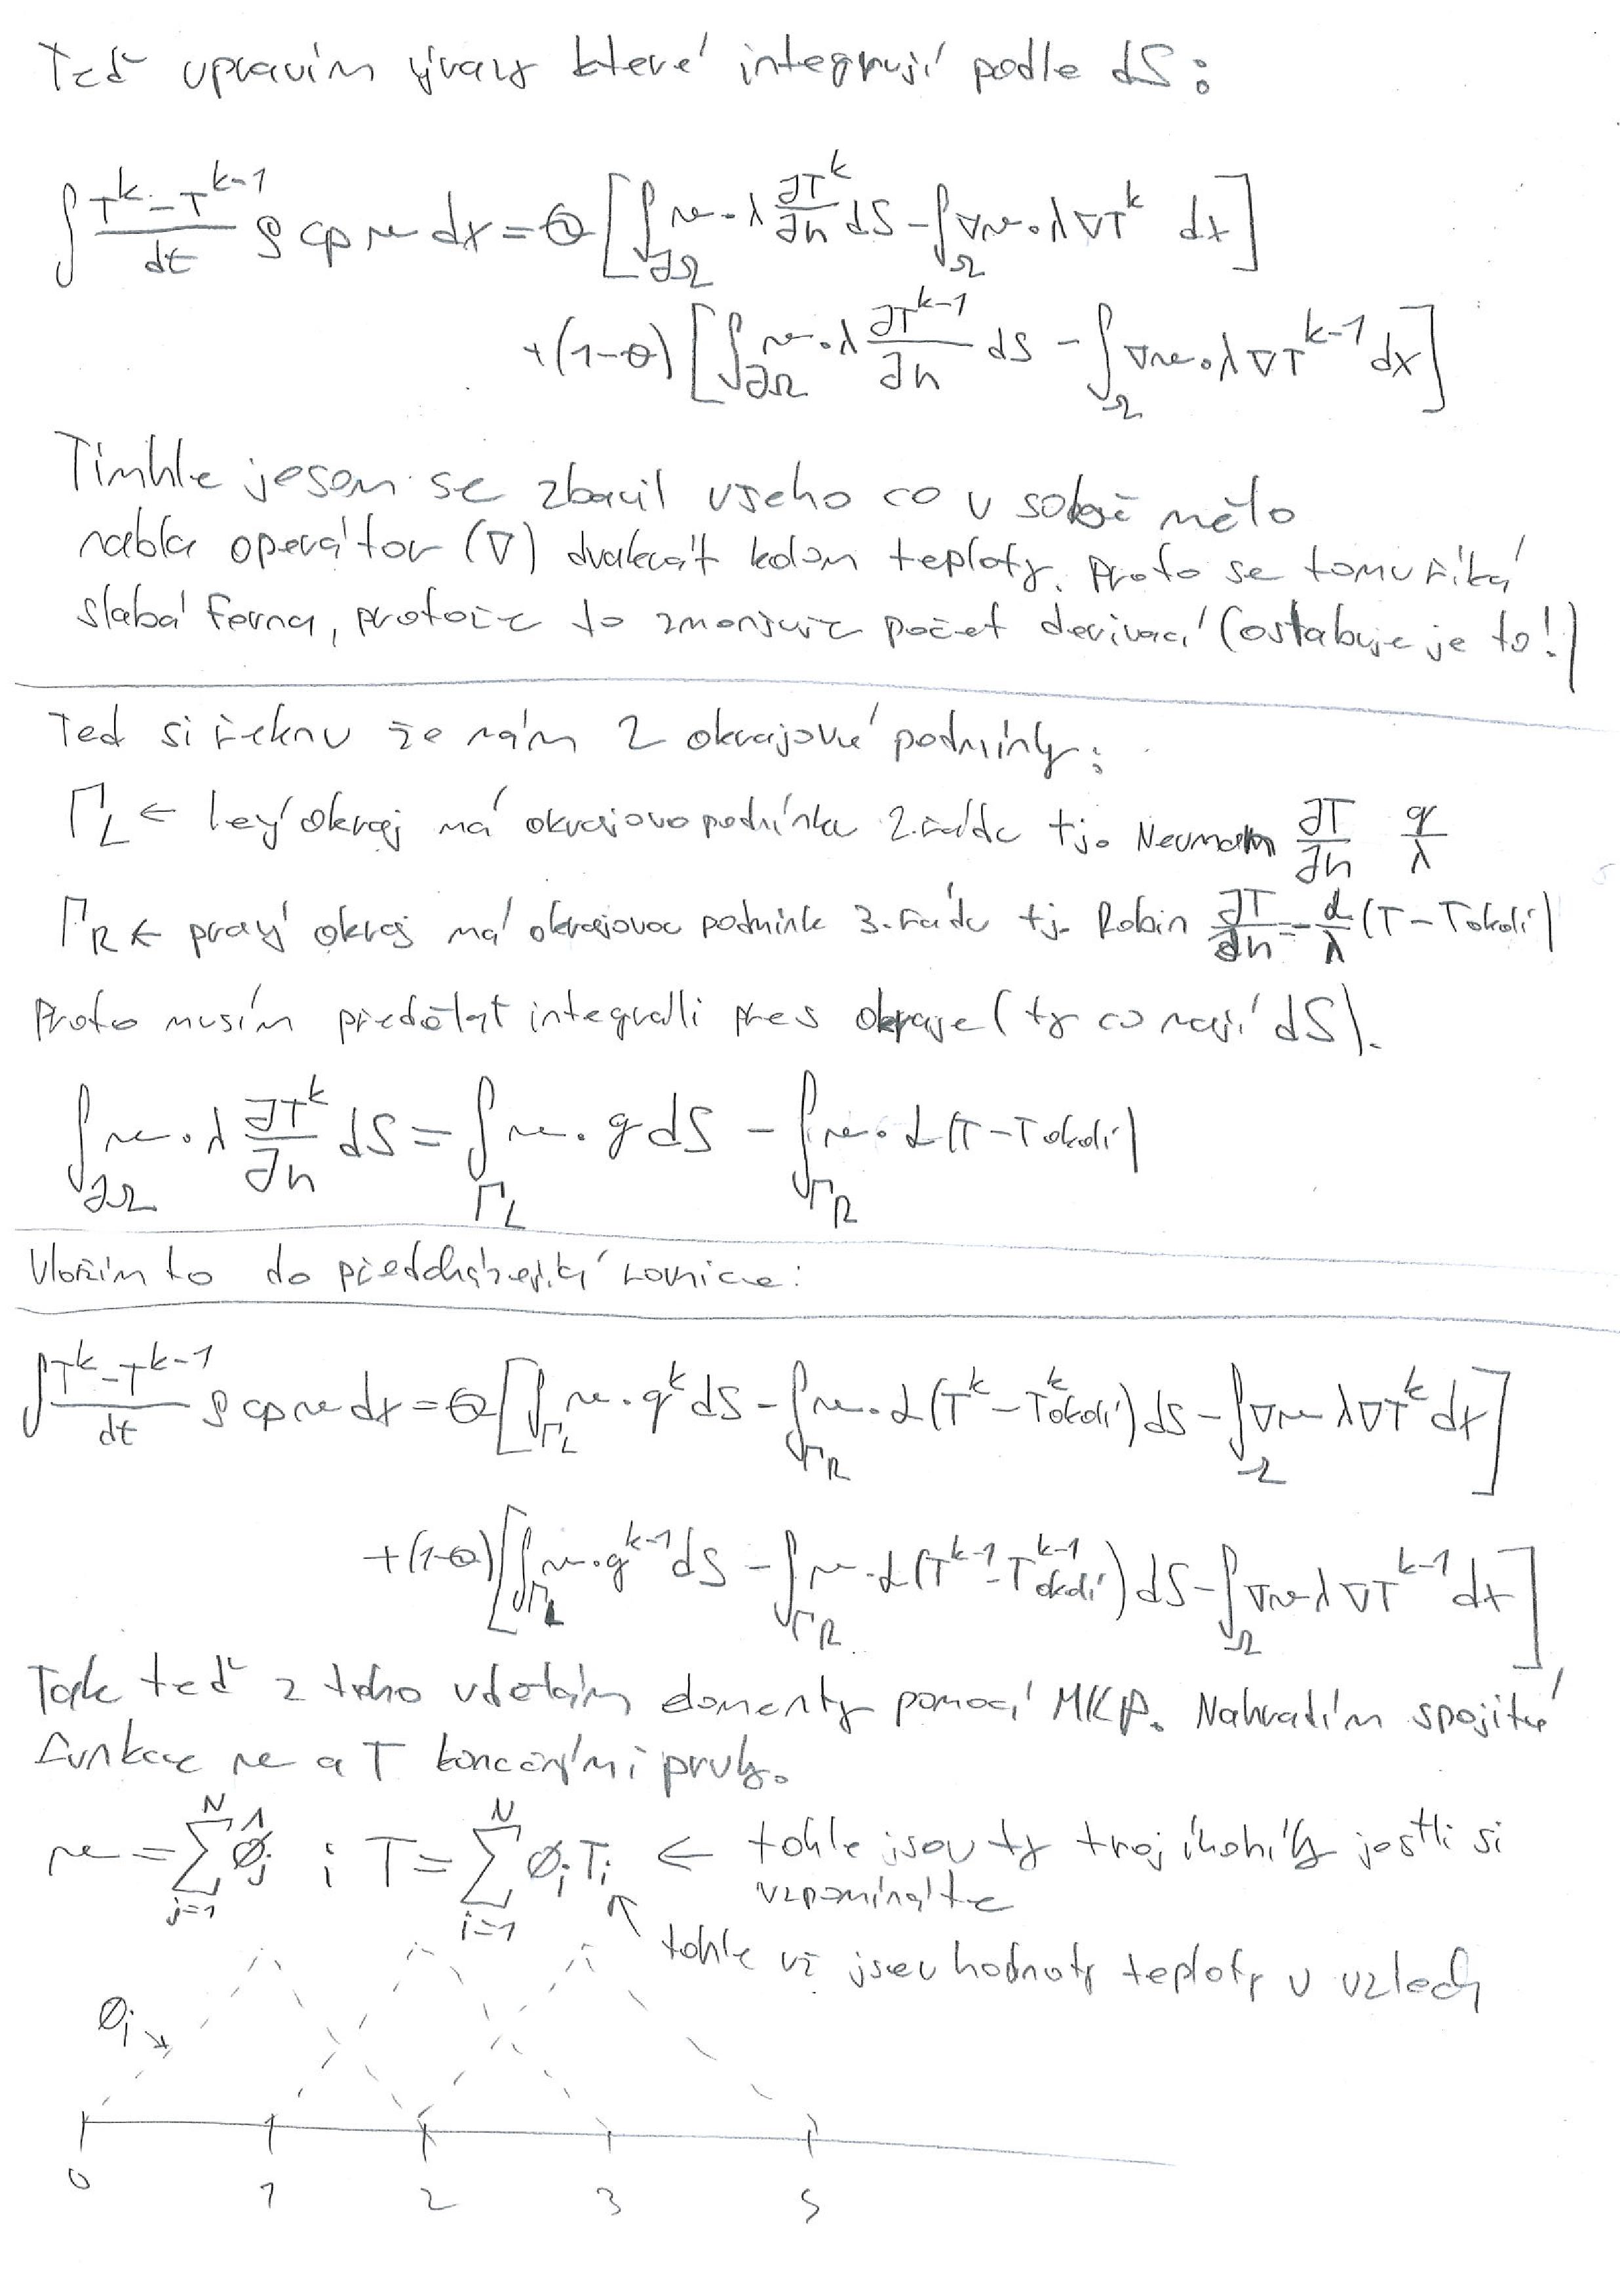 Teď upravím výrazy které integrují podle dS:
∫ (T^k - T^{k-1})/dt ρ cp w dx = Θ [ ∫_{∂Ω} w · λ ∂T^k/∂n dS - ∫_Ω ∇w · λ ∇T^k dx ]
+ (1-Θ) [ ∫_{∂Ω} w · λ ∂T^{k-1}/∂n dS - ∫_Ω ∇w · λ ∇T^{k-1} dx ]
Tímhle jsem se zbavil všeho co v sobě mělo
nabla operátor (∇) dvakrát kolem teploty. Proto se tomu říká
slabá forma, protože to zmenšuje počet derivací (oslabuje je to!)
Ted si řeknu že mám 2 okrajové podmínky:
Γ_L ← levý okraj má okrajovo podmínku 2. řádu tj. Neumann ∂T/∂n q/λ
Γ_R ← pravý okraj má okrajovou podmínk 3. řádu tj. Robin ∂T/∂n = -α/λ (T - Tokolí)
Proto musím předělat integrálli přes okraje (ty co mají dS).
∫_{∂Ω} w · λ ∂T^k/∂n dS = ∫_{Γ_L} w · q dS - ∫_{Γ_R} w · α (T - Tokolí)
Vložím to do předcházející rovnice:
∫ (T^k - T^{k-1})/dt ρ cp w dx = Θ [ ∫_{Γ_L} w · q^k dS - ∫_{Γ_R} w · α (T^k - T^k_{okolí}) dS - ∫_Ω ∇w λ ∇T^k dx ]
+ (1-Θ) [ ∫_{Γ_L} w · q^{k-1} dS - ∫_{Γ_R} w · α (T^{k-1} - T^{k-1}_{okolí}) dS - ∫_Ω ∇w λ ∇T^{k-1} dx ]
Tak teď z toho udělám elementy pomocí MKP. Nahradím spojité
funkce w a T konečnými prvky.
w = ∑_{j=1}^{N} ϕ_j ; T = ∑_{i=1}^{N} ϕ_i T_i ← tohle jsou ty trojúhohíky jestli si
vzpomínáte
tohle už jsou hodnoty teploty v uzlech
ϕ_i
0 1 2 3 5